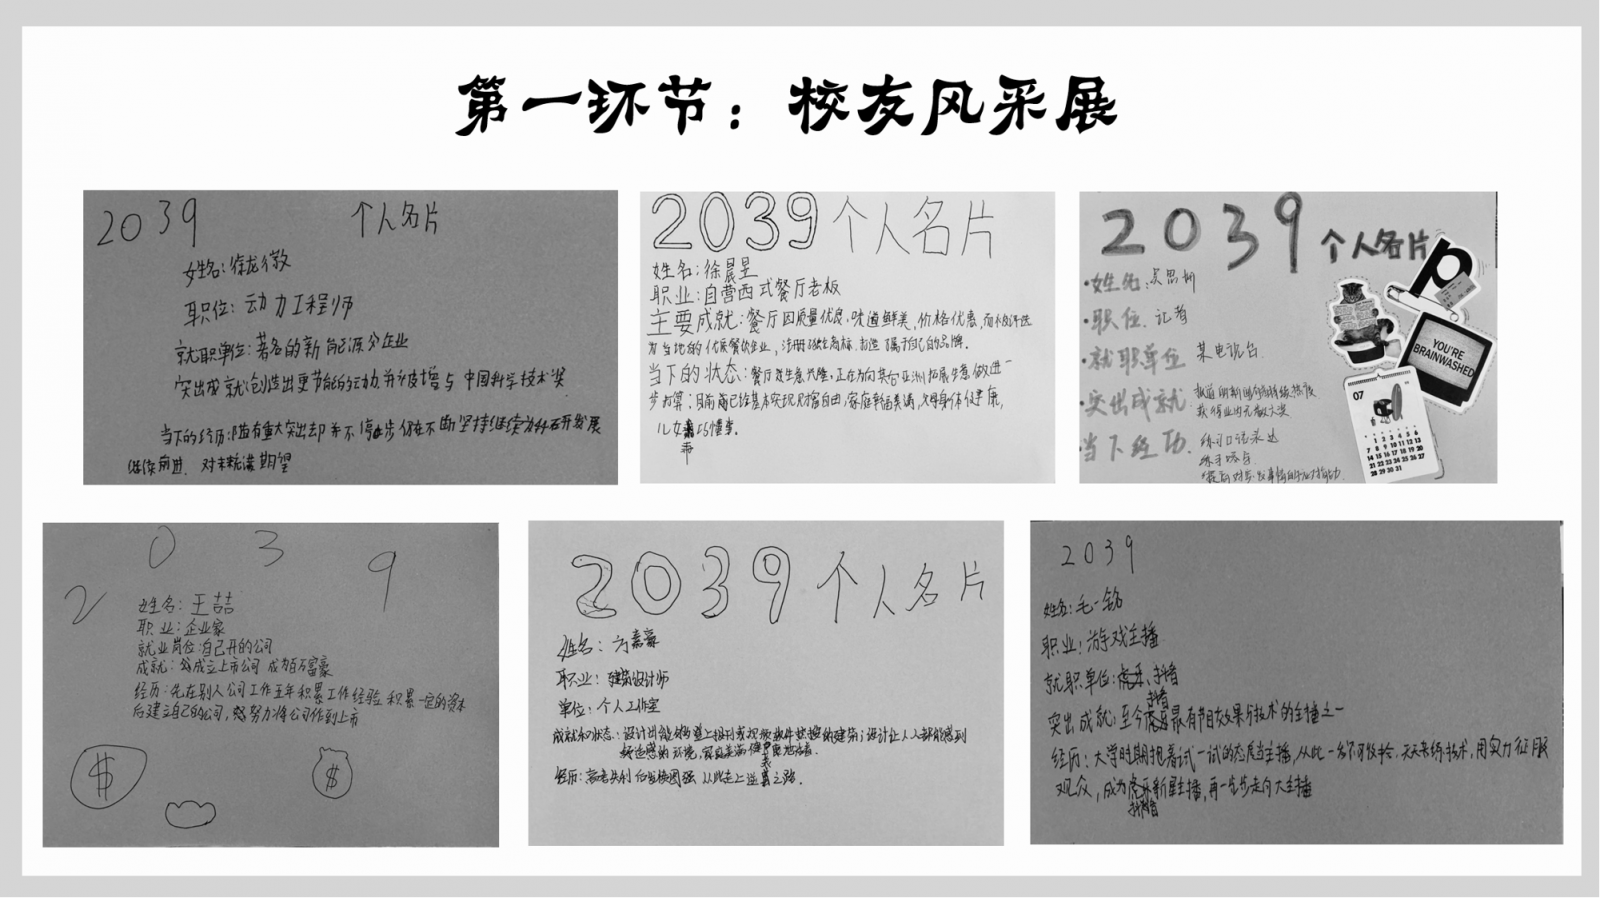 第一环节：校友风采展
2039 个人名片
姓名：徐龙微
职位：动力工程师
就职单位：著名的新能源企业
突出成就：创造出更节能的动力 中国科学技术奖
当下的经历：随有重大突出却并不停止步 仍在不断坚持继续为科研开发展
继续前进，对未来充满期望
2039个人名片
姓名：徐晨昱
职业：自营西式餐厅老板
主要成就：餐厅因质量优良，味道鲜美，价格优惠，而被评选
为当地的优质餐饮企业，注册独立商标，打造了属于自己的品牌。
当下的状态：餐厅生意兴隆，正在为向其台亚洲拓展生意做进一
步打算；目前已经基本实现财富自由，家庭幸福美满，父母身体健康，
儿女乖巧懂事。
2039 个人名片
·姓名：
·职位：记者
·就职单位 某电视台
·突出成就：
获得业内元敬大奖
·当下经历 练习口语表达
2039
姓名：王喆
职业：企业家
就业岗位：自己开的公司
成就：成立上市公司 成为百万富豪
经历：先在别人公司工作五年积累工作经验 积累一定的资本
后建立自己的公司，努力将公司作到上市
$
$
2039个人名片
姓名：方嘉豪
职业：建筑设计师
单位：个人工作室
成就和状态：设计出能够 的建筑；设计让人人都能感到
舒适感的环境，家庭美满 健康地活着.
经历：高考失利 但发愤图强 从此走上逆袭之路.
2039
姓名：毛一铭
职业：游戏主播
就职单位：抖音
突出成就：至今抖音最有节目效果与技术的主播之一
经历：大学时期抱着试一试的态度当主播，从此一发不可收拾，天天来练技术，用实力征服
观众，成为抖音新星主播，再一步步走向大主播
YOU'RE
BRAINWASHED
07
1 2 3 4 5 6
7 8 9 10 11 12 13
14 15 16 17 18 19 20
21 22 23 24 25 26 27
28 29 30 31